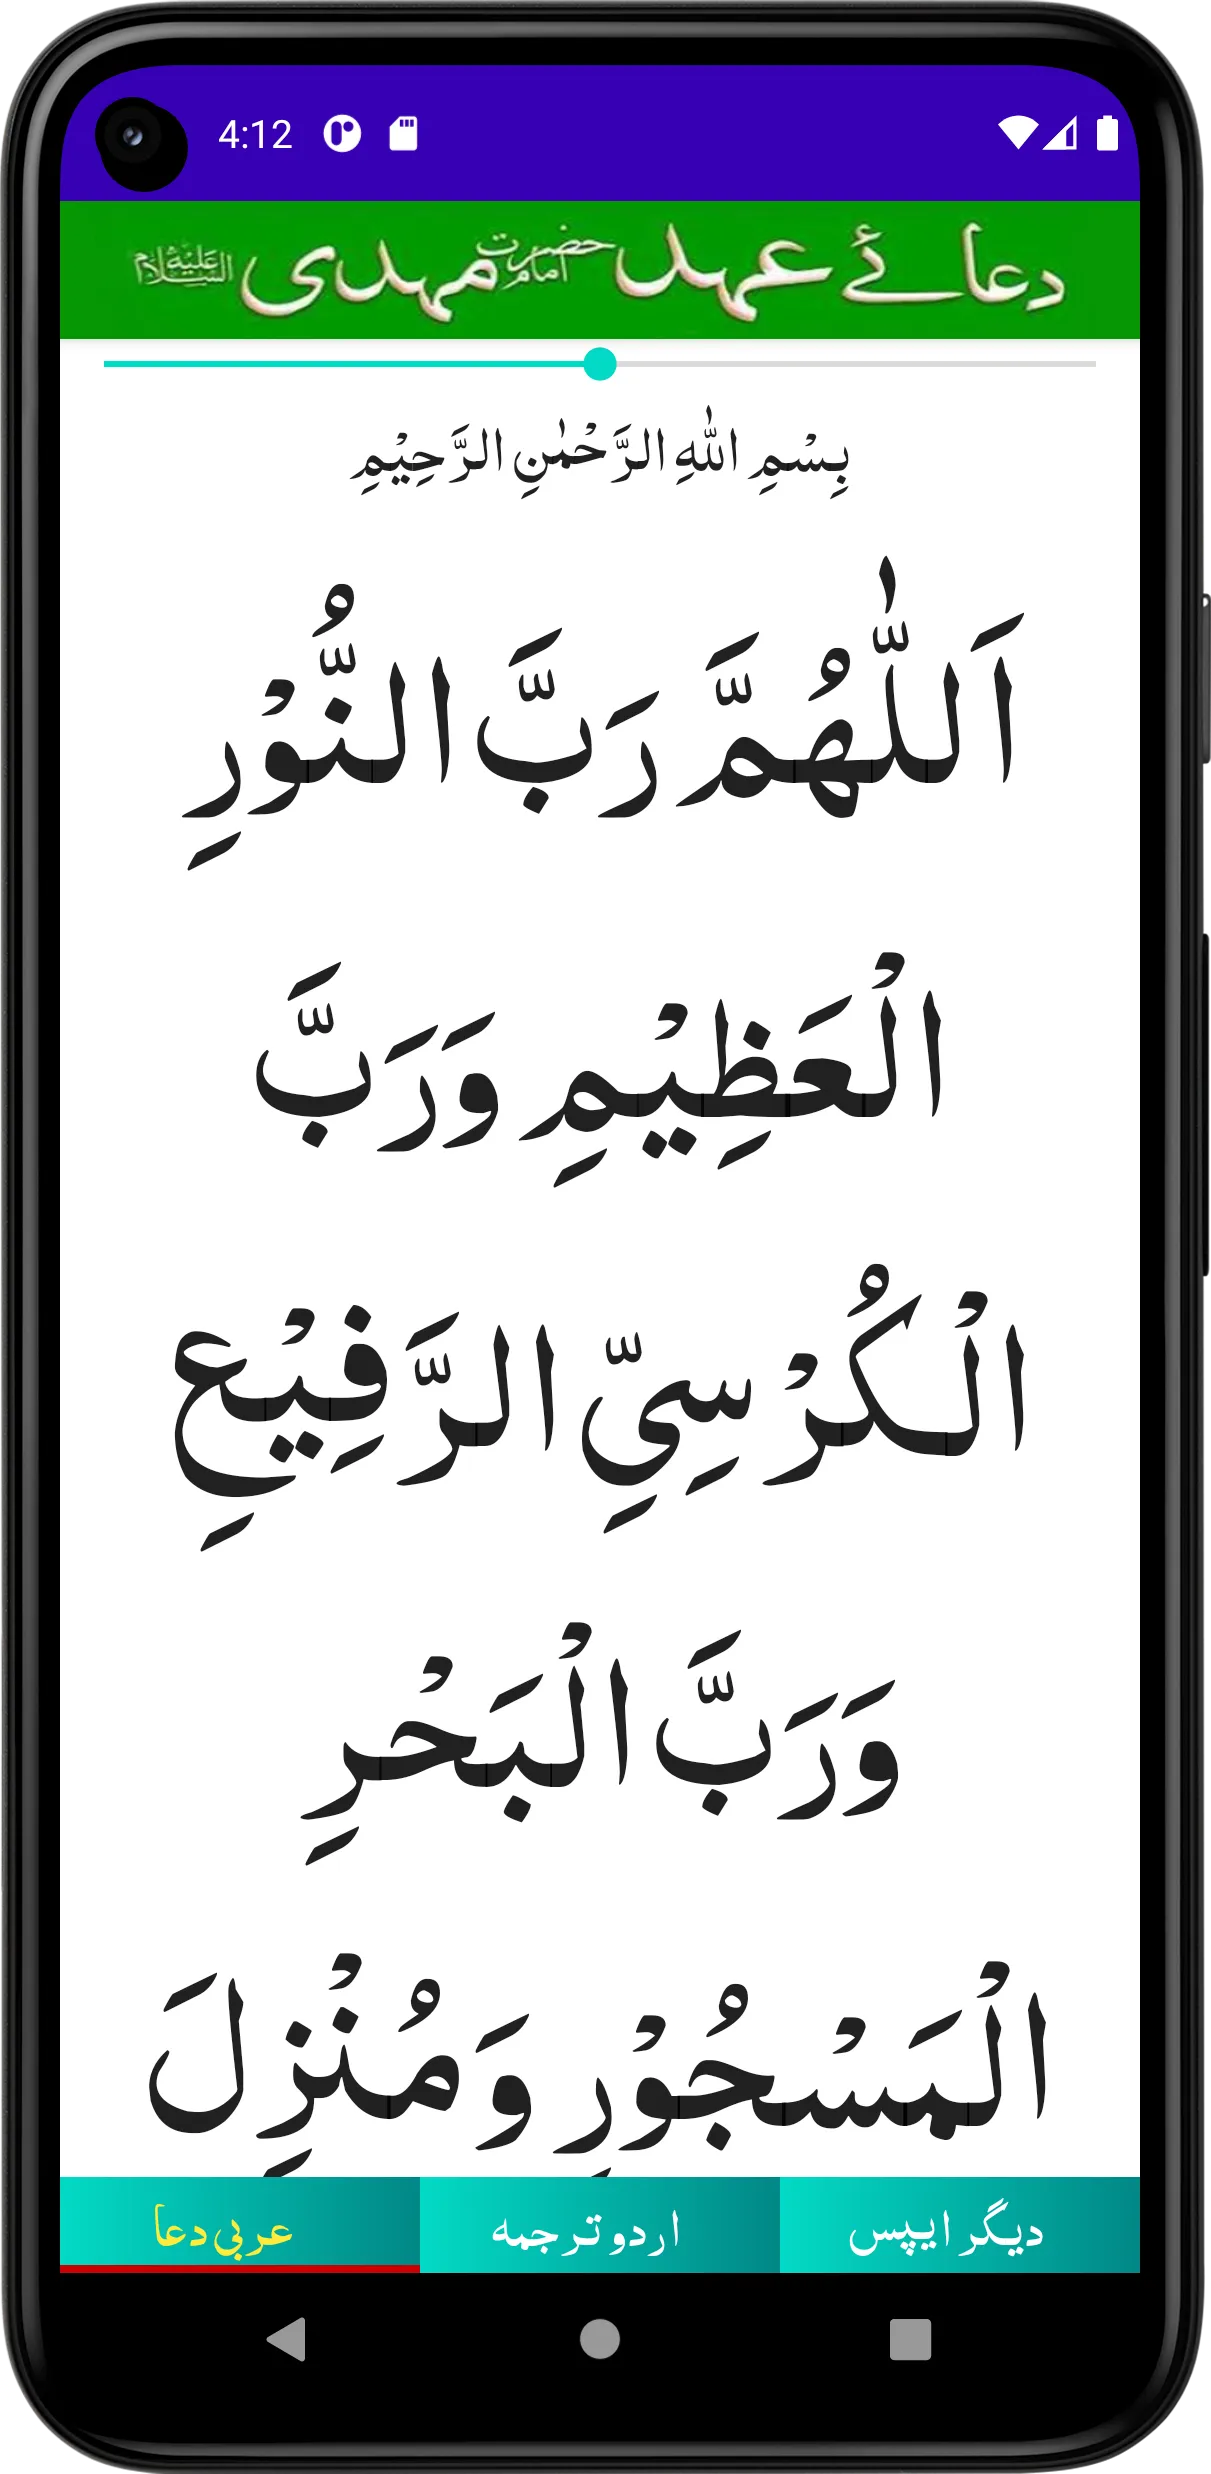 4:12
دعائے عہد حضرت امام مہدی علیہ السلام
بِسْمِ اللهِ الرَّحْمٰنِ الرَّحِيْمِ
اَللّٰهُمَّ رَبَّ النُّوْرِ
الْعَظِيْمِ وَرَبَّ
الْكُرْسِيِّ الرَّفِيْعِ
وَرَبَّ الْبَحْرِ
الْمَسْجُوْرِ وَمُنْزِلَ
دیگر ایپس
اردو ترجمہ
عربی دعا